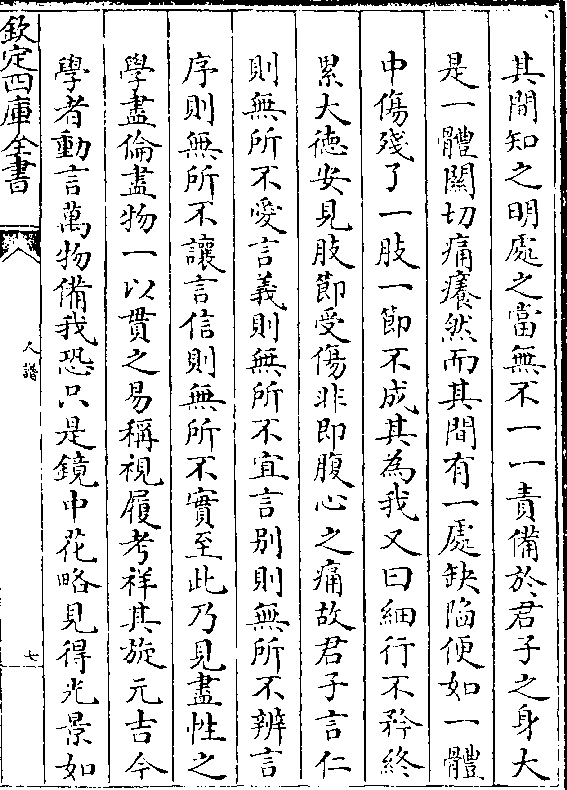 其間知之明處之當無不一一責備於君子之身大
是一體關切痛癢然而其間有一處缺陷便如一體
中傷殘了一肢一節不成其為我又曰細行不矜終
累大德安見肢節受傷非即腹心之痛故君子言仁
則無所不愛言義則無所不宜言别則無所不辨言
序則無所不讓言信則無所不實至此乃見盡性之
學盡倫盡物一以貫之易稱視履考祥其旋元吉今
學者動言萬物備我恐只是鏡中花略見得光景如
欽定四庫全書
人譜
七